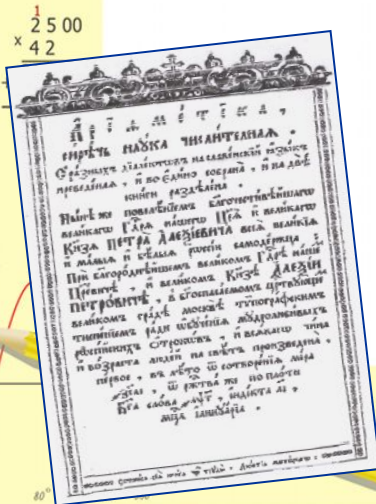 1
2500
x 42
Арїѳметїка,
сирѣчь наука числителная.
Съ разныхъ дїалектовъ на славенскїй языкъ
преведеная, и во едино собрана, и на двѣ
книги раздѣлена.
Нынѣ же повелѣнїемъ благочестивѣйшагѡ
великагѡ Гдⷭ҇ря нашегѡ Цр҃я и великагѡ
Кн҃зя ПЕТРА АЛЕѮЇЕВИЧА всея великїя
и малыя и бѣлыя рѡссїи самодержца:
При благороднѣйшемъ великомъ Гдⷭ҇рѣ нашемъ
Цр҃евичѣ, и великомъ Кн҃зѣ АЛЕѮЇИ
ПЕТРОВИЧѢ, в богоспасаемомъ црⷭ҇твующемъ
великомъ градѣ москвѣ типографскимъ
тиснениемъ ради ѡбученїя мудролюбивыхъ
рѡссїйскихъ отрокѡвъ, и всякагѡ чина
и возраста людей на свѣтъ произведена,
первое, в лѣто ѿ сотворенїя мира
҂зсаі, ѿ ржⷭ҇тва же по плоти
Бг҃а слова ҂аѱг, індікта аі,
мцⷭ҇а іаннуарїа.
80°